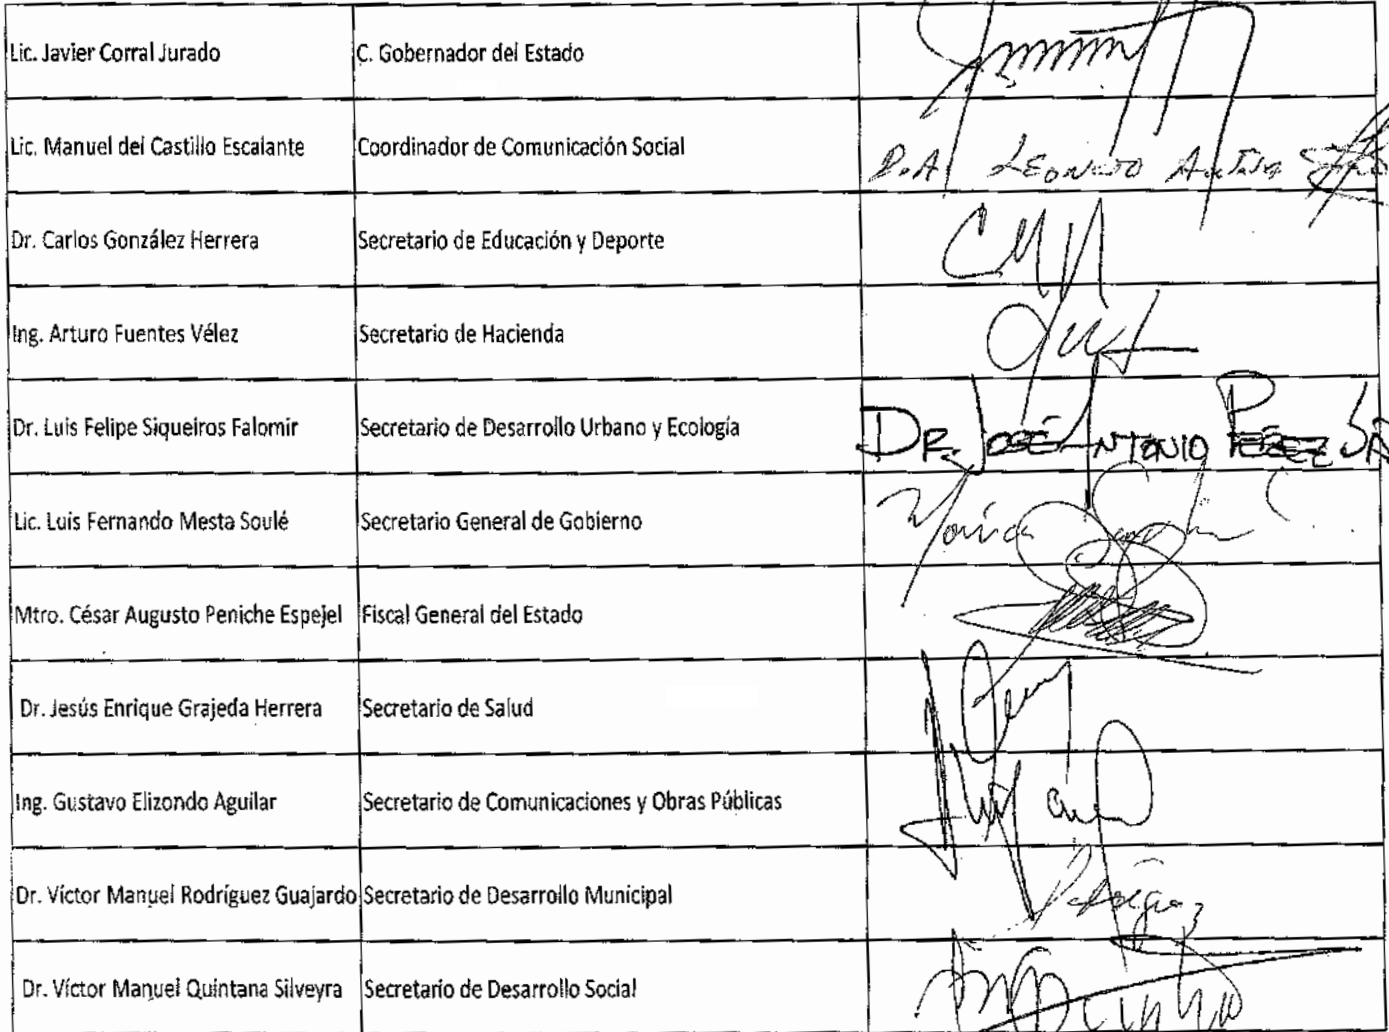 Lic. Javier Corral Jurado C. Gobernador del Estado
Lic. Manuel del Castillo Escalante Coordinador de Comunicación Social P.A. LEONCIO
Dr. Carlos González Herrera Secretario de Educación y Deporte
Ing. Arturo Fuentes Vélez Secretario de Hacienda
Dr. Luis Felipe Siqueiros Falomir Secretario de Desarrollo Urbano y Ecología DR. JOSÉ ANTONIO PÉREZ SÁ
Lic. Luis Fernando Mesta Soulé Secretario General de Gobierno
Mtro. César Augusto Peniche Espejel Fiscal General del Estado
Dr. Jesús Enrique Grajeda Herrera Secretario de Salud
Ing. Gustavo Elizondo Aguilar Secretario de Comunicaciones y Obras Públicas
Dr. Víctor Manuel Rodríguez Guajardo Secretario de Desarrollo Municipal
Dr. Víctor Manuel Quintana Silveyra Secretario de Desarrollo Social